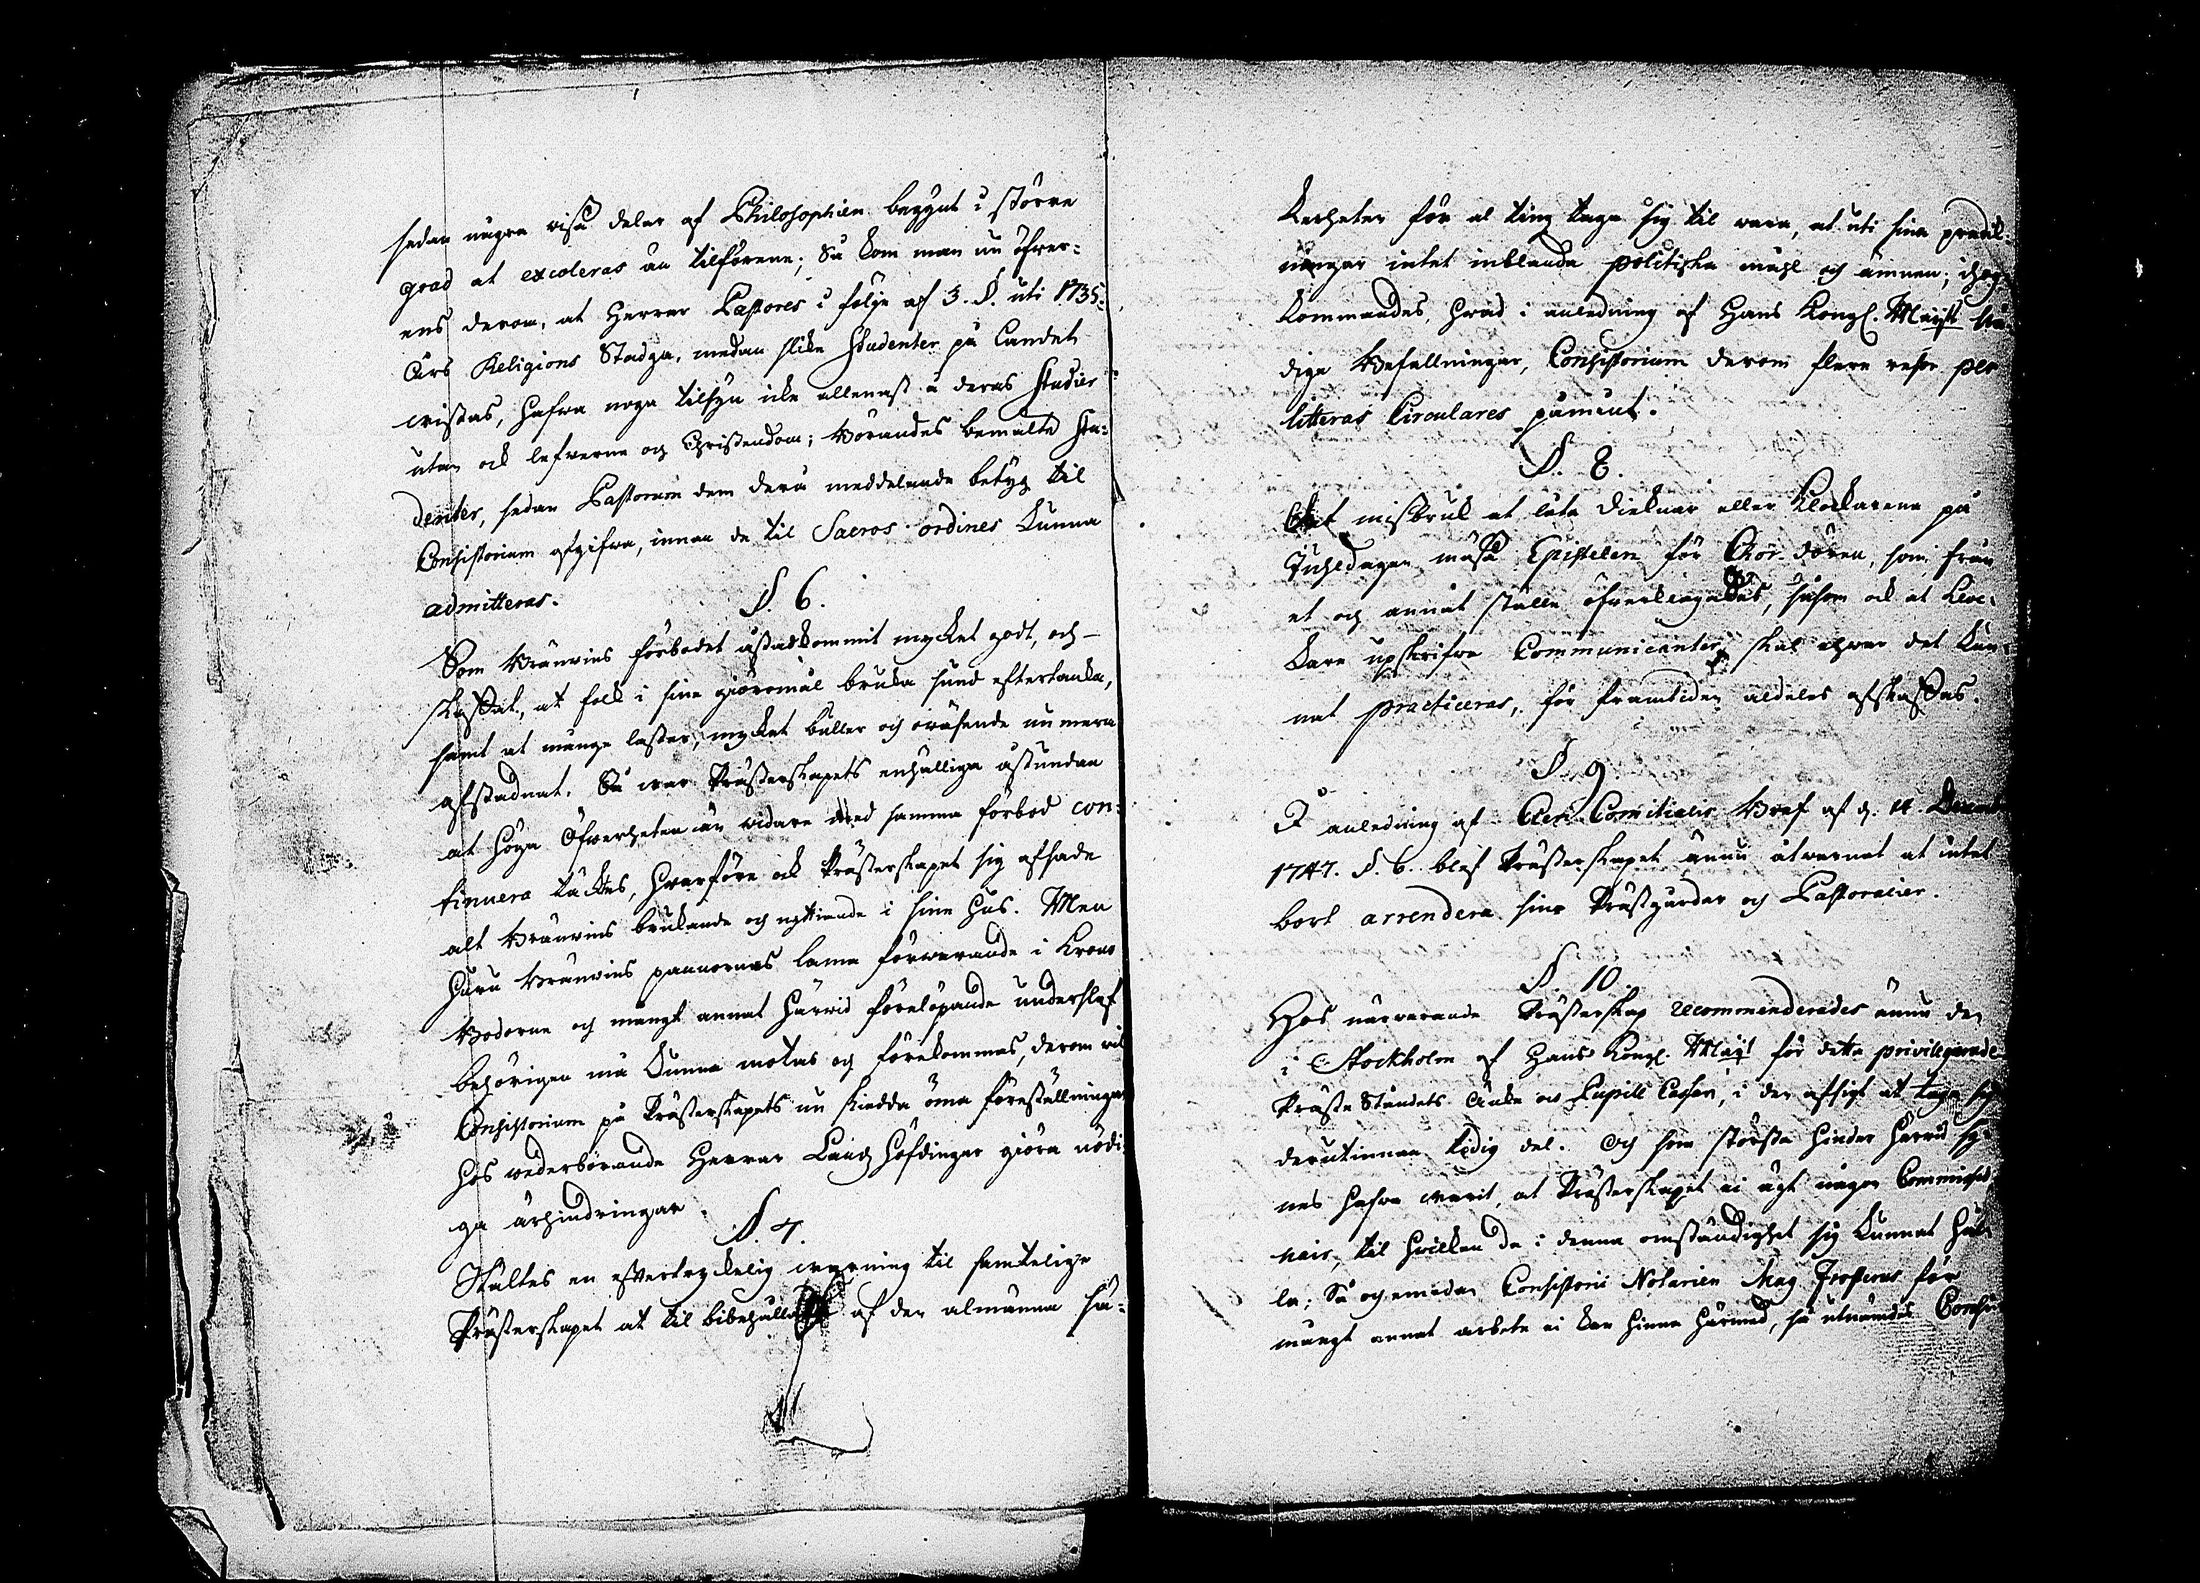 sedan några wissa delar af Philosophien begynt i större
grad at excoleras än tilförene; Så kom man nu öfwer-
ens derom, at Herrar Pastores i följe af 3. §. uti 1735.
Års Religions Stadga, medan slike Studenter på Landet
wistas, hafwa noga tilsyn icke allenast å deras Studier
utan ock lefwerne och Christendom; Börandes bemälte Stu-
denter, sedan Pastorum dem derå meddelande betyg til
Consistorium afgifwa, innan de til Sacros ordines kunna
admitteras.
§. 6.
Som Bränwins förbodet åstadkommit mycket godt, och
skaffat, at folk i sine giöromål bruka sund eftertanka,
samt at många laster, mycket buller och owäsende nu mera
afstadnat. Så war Prästerskapets enhälliga åstundan
at höga Öfwerheten än widare med samma förbod con-
tinuera täcktes, hwarföre ock Prästerskapet sig afsade
alt Bränwins brukande och nyttiande i sine hus. Men
huru Bränwins pannornas lama förwarande i Krono
Bodorne och mångt annat härwid förelöpande underslef
behörigen må kunna motas och förekommas, derom wil
Consistorium på Prästerskapets nu skiedda öma föreställningar
hos wederbörande Herrar Landz Höfdingar giöra nödi-
ga ärhindringar.
§. 7.
Stältes en eftertryckelig warning til samtelige
Prästerskapet at til bibehållande af den almänna sä-
kerheten för al ting taga sig til wara, at uti sina predik-
ningar intet inblanda politiska mål och ämnen; ihog-
kommandes, hwad i anledning af Hans Kongl. Maijst nå-
dige Befallningar, Consistorium derom flere resor per
litteras Circulares påmint.
§. 8.
Det missbruk at låta Dieknar eller Klockarena på
Juhldagen mässa Epistelen för Chor-dören, som från
et och annat ställe öfwerklagades, såsom ock at Kloc-
kare upskrifwa Communicanter, skal ehwar det kun-
nat practiceras, för framtiden aldeles afskaffas.
§. 9.
I anledning af Cleri Comitialis Bref af d. 14 Decemb
1747. §. 6. blef Prästerskapet ännu åtwarnat at intet
bort arrendera sine Prästgårdar och Pastoralier.
§. 10
Hos närwarande Prästerskap recommenderades ännu den
i Stockholm af Hans Kongl. Maijt för detta privilegerade
Präste Ståndets Änke och Pupill Cassan, i den afsigt at taga sig
derutinnan tidig del. Och som största hinder härwid sy-
nes hafwa warit, at Prästerskapet ei ägt någon Commissio-
nair, til hwilken de i denna omständighet sig kunnat hål-
la; Så och emedan Consistorii Notarien Mag. för
mångt annat arbete ei kan hinna härmed, så utnämdes Consi-